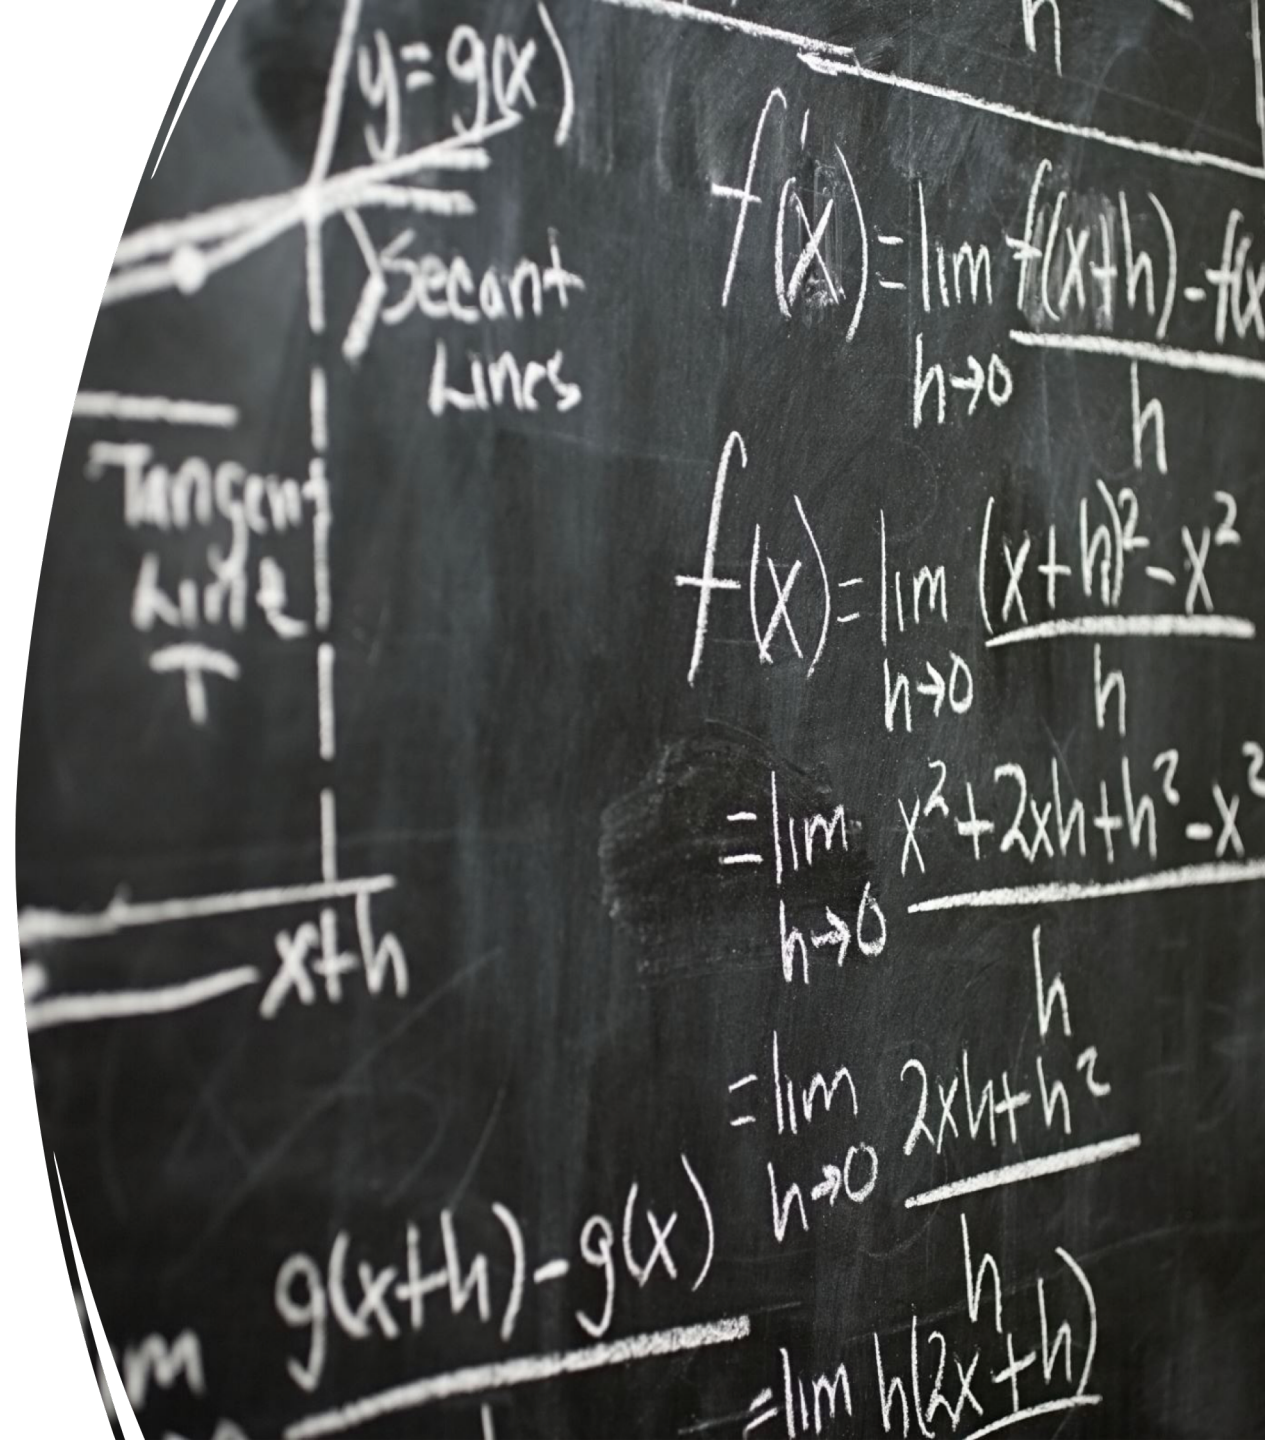 y=g(x)
Secant
Lines
Tangent
Line
T
x+h
g(x+h)-g(x)
h
f'(x)=lim f(x+h)-f(x
h→0 h
f(x)=lim (x+h)²-x²
h→0 h
=lim x²+2xh+h²-x²
h→0 h
=lim 2xh+h²
h→0 h
=lim h(2x+h)